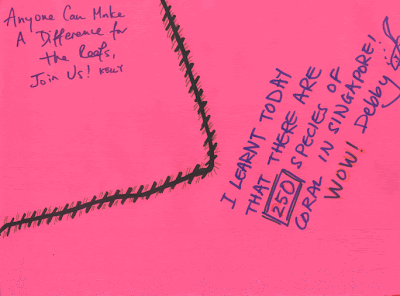 Anyone Can Make
A Difference for
the Reefs,
Join Us! KELLY
I LEARNT TODAY
THAT THERE ARE
250 SPECIES OF
CORAL IN SINGAPORE!
WOW! Debby